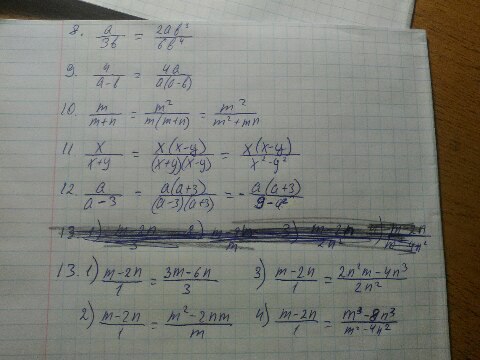 8. a/3b = 2ab³/6b⁴
9. 4/(a-b) = 4a/(a(a-b))
10. m/(m+n) = m²/(m(m+n)) = m²/(m²+mn)
11 x/(x+y) = x(x-y)/((x+y)(x-y)) = x(x-y)/(x²-y²)
12. a/(a-3) = a(a+3)/((a-3)(a+3)) = - a(a+3)/(9-a²)
13. 1) (m-2n)/1 = (3m-6n)/3 3) (m-2n)/1 = (2n²m-4n³)/2n²
2) (m-2n)/1 = (m²-2nm)/m 4) (m-2n)/1 = (m³-8n³)/(m²-4n²)